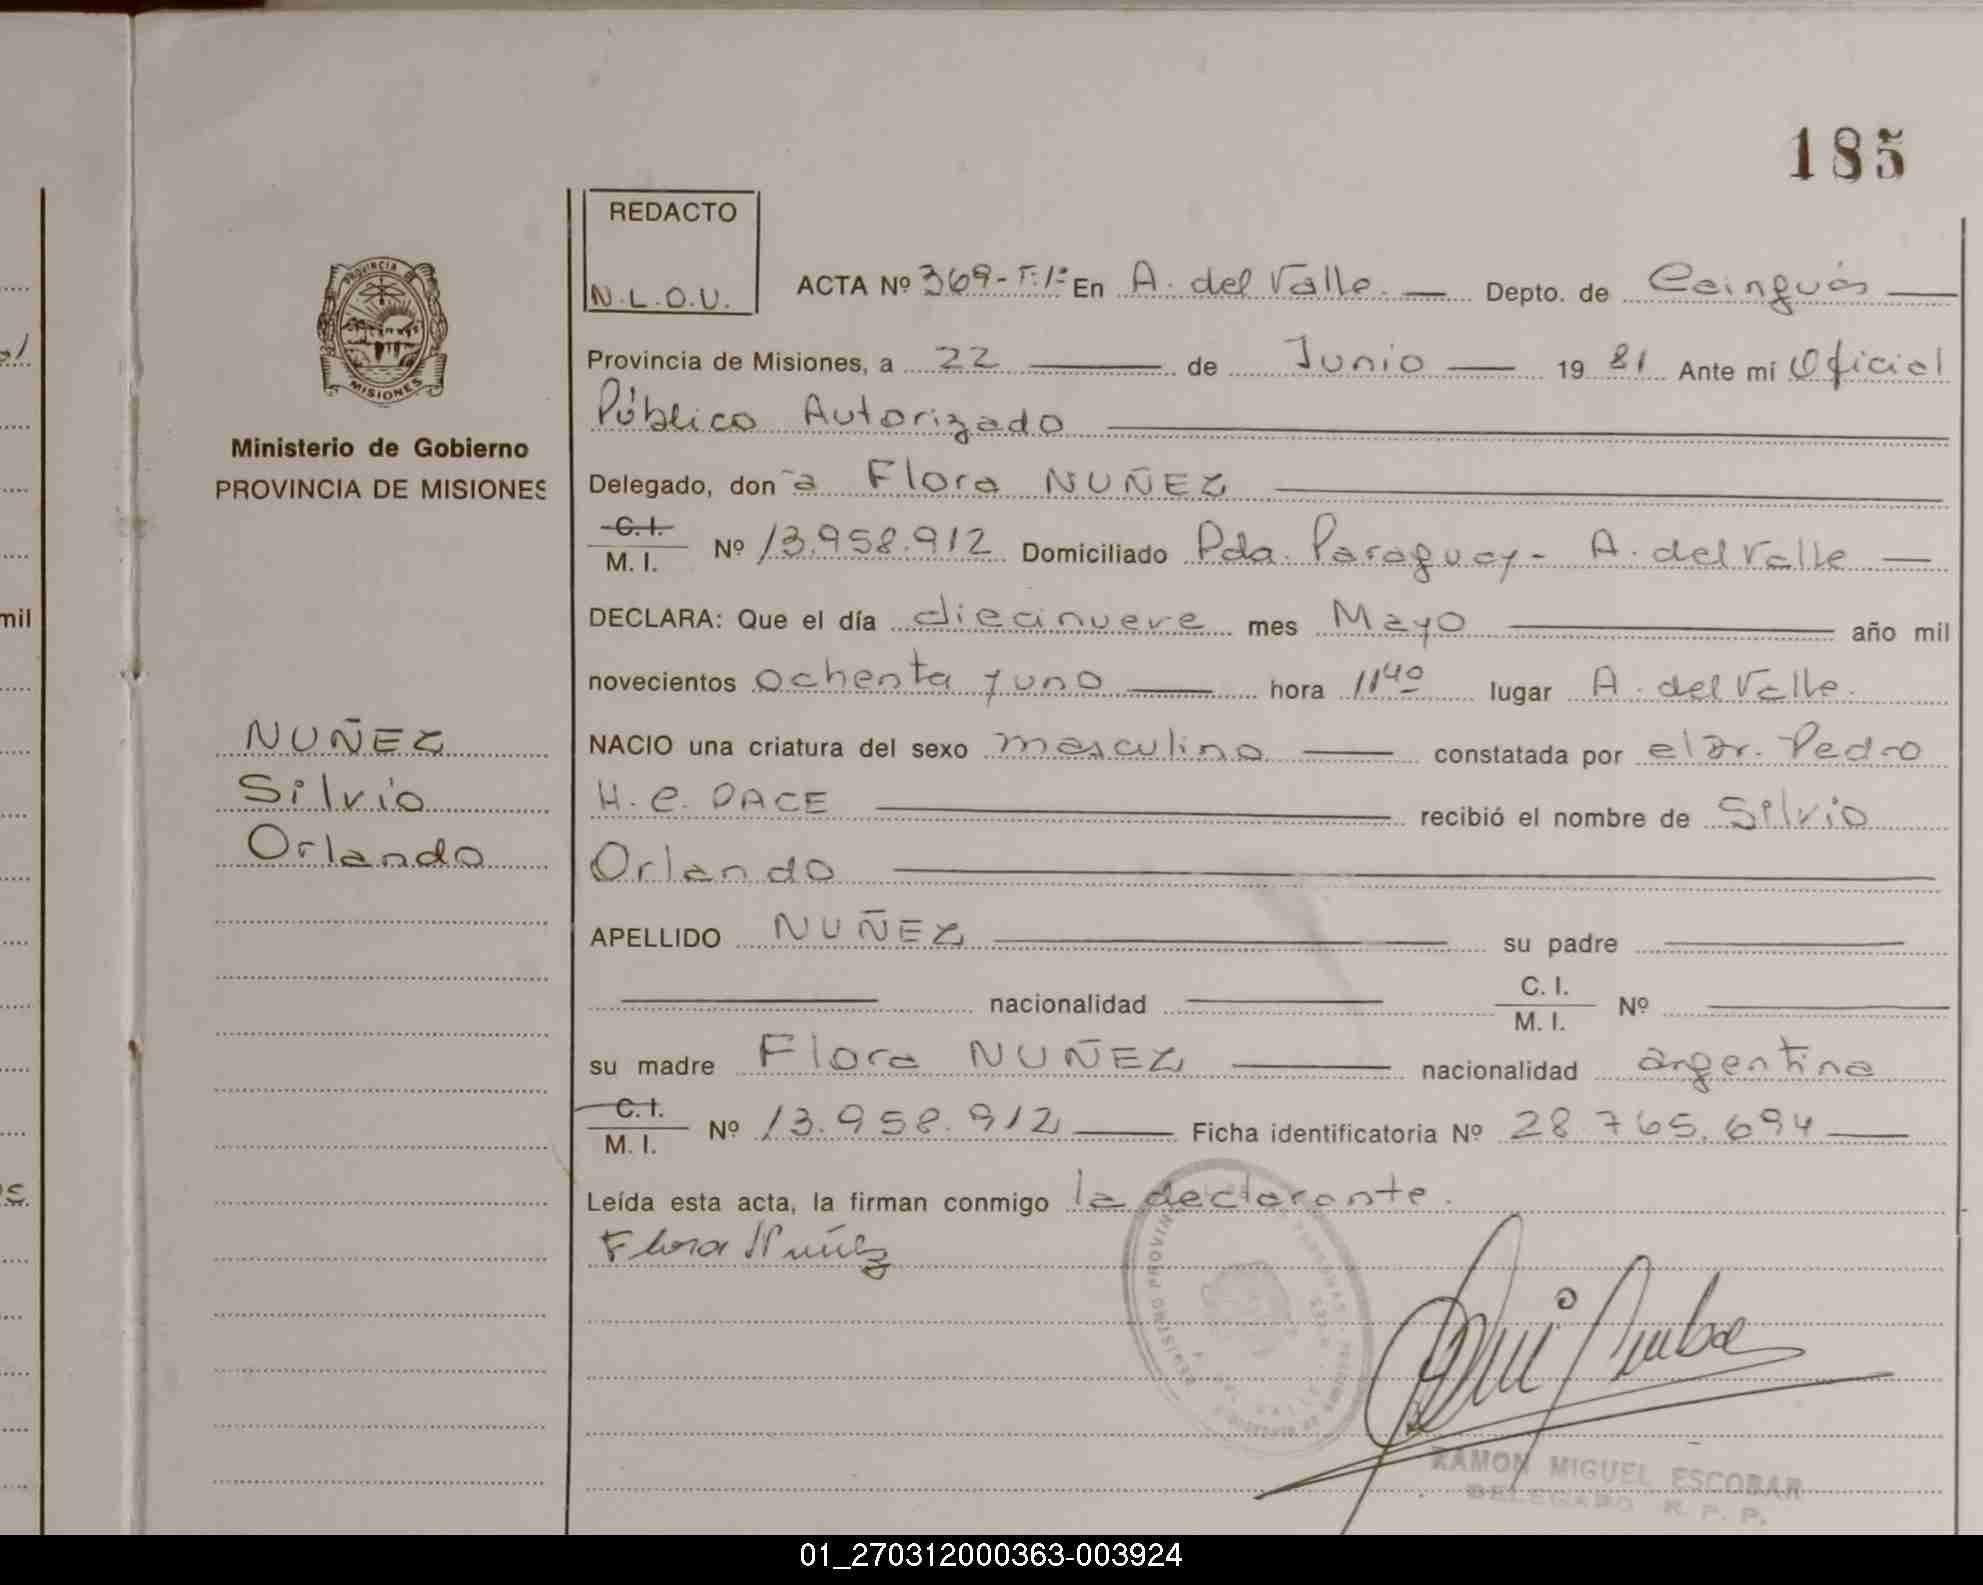 185
REDACTO
N.L.O.U.
ACTA Nº 369-T:1º En A. del Valle. Depto. de Cainguás
Provincia de Misiones, a 22 de Junio 19 81 Ante mí Oficial
Público Autorizado
Delegado, don a Flora NUÑEZ
C.I.
M. I. Nº 13.958.912 Domiciliado Pda. Paraguay - A. del Valle
DECLARA: Que el día diecinueve mes Mayo año mil
novecientos ochenta y uno hora 11 40 lugar A. del Valle.
NACIO una criatura del sexo masculino constatada por el Dr. Pedro
H. C. PACE recibió el nombre de Silvio
Orlando
APELLIDO NUÑEZ su padre
nacionalidad C. I.
M. I. Nº
su madre Flora NUÑEZ nacionalidad argentina
C. I.
M. I. Nº 13.958.912 Ficha identificatoria Nº 28.765.694
Leída esta acta, la firman conmigo la declarante.
Flora Nuñez
RAMON MIGUEL ESCOBAR
DELEGADO R. P. P.
PROVINCIA DE
MISIONES
Ministerio de Gobierno
PROVINCIA DE MISIONES
NUÑEZ
Silvio
Orlando
mil
01_270312000363-003924